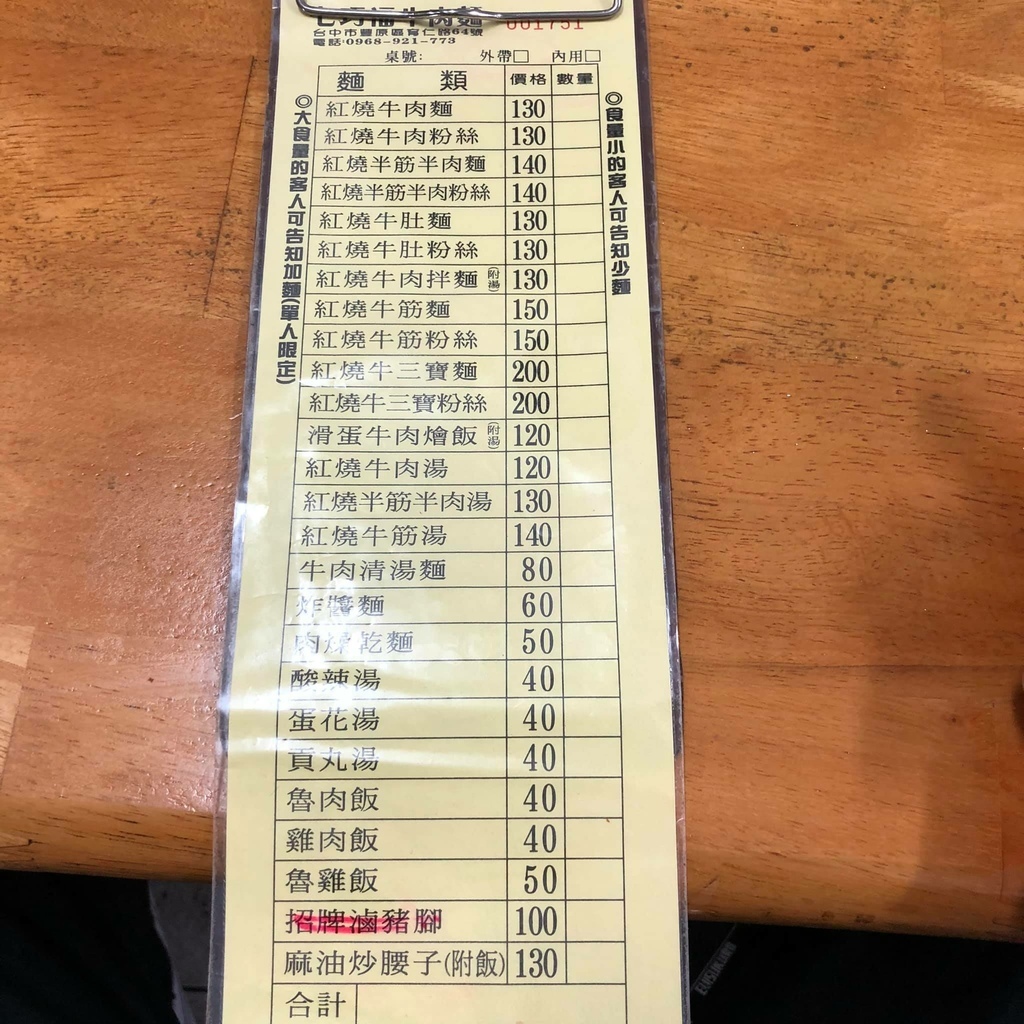 福牛肉麵 001751
台中市豐原區育仁路64號
電話:0968-921-773
桌號: 外帶□ 內用□
麵 類 價格 數量
紅燒牛肉麵 130
紅燒牛肉粉絲 130
紅燒半筋半肉麵 140
紅燒半筋半肉粉絲 140
紅燒牛肚麵 130
紅燒牛肚粉絲 130
紅燒牛肉拌麵(附湯) 130
紅燒牛筋麵 150
紅燒牛筋粉絲 150
紅燒牛三寶麵 200
紅燒牛三寶粉絲 200
滑蛋牛肉燴飯(附湯) 120
紅燒牛肉湯 120
紅燒半筋半肉湯 130
紅燒牛筋湯 140
牛肉清湯麵 80
炸醬麵 60
肉燥乾麵 50
酸辣湯 40
蛋花湯 40
貢丸湯 40
魯肉飯 40
雞肉飯 40
魯雞飯 50
招牌滷豬腳 100
麻油炒腰子(附飯) 130
合計
◎大食量的客人可告知加麵(單人限定)
◎食量小的客人可告知少麵